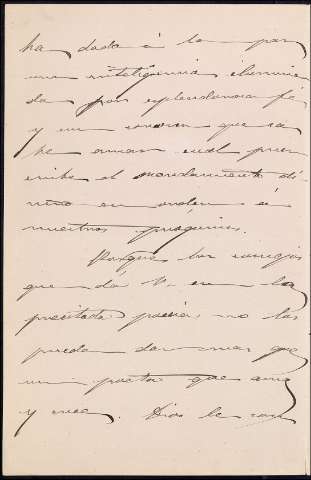 ha dado á la par
una inteligencia ilumina
da por esplendorosa fé
y un corazon que sa
be amar cual pres
cribe el mandamiento di
vino en orden á
nuestros prógimos.
Porque los consejos
que dá V. en la
precitada poesía, no los
puede dar mas que
un poeta que ama
y cree. Dios le con